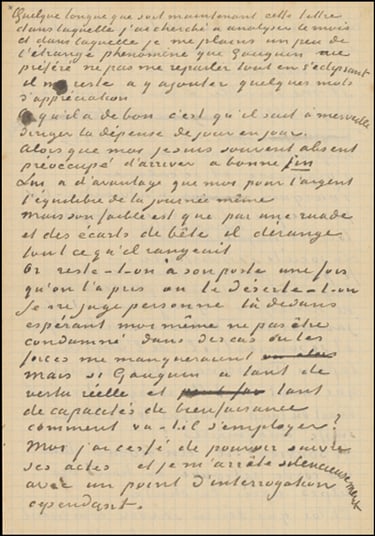 Quelque longue que soit maintenant cette lettre
dans laquelle j'ai cherché à analyser le mois
et dans laquelle je me plains un peu de
l'étrange phenomène que Gauguin aie
préféré ne pas me reparler tout en s'eclipsant
il me reste a y ajouter quelques mots
d'appréciation
Ce qu'il a de bon c'est qu'il sait à merveille
diriger la dépense de jour en jour.
Alors que moi je suis souvent absent
préoccupé d'arriver a bonne fin
Lui a d'avantage que moi pour l'argent
l'équilibre de la journée même
Mais son faible est que par une ruade
et des écarts de bête il dérange
tout ce qu'il rangeait
Or reste-t-on à son poste une fois
qu'on l'a pris ou le déserte-t-on
Je ne juge personne là dedans
espérant moi même ne pas être
condamné dans des cas où les
forces me manqueraient
mais si Gauguin a tant de
vertu réelle et tant
de capacités de bienfaisance
comment va-t-il s'employer?
Moi j'ai cessé de pouvoir suivre
ses actes et je m'arrête silencieusement
avec un point d'interrogation
cependant.